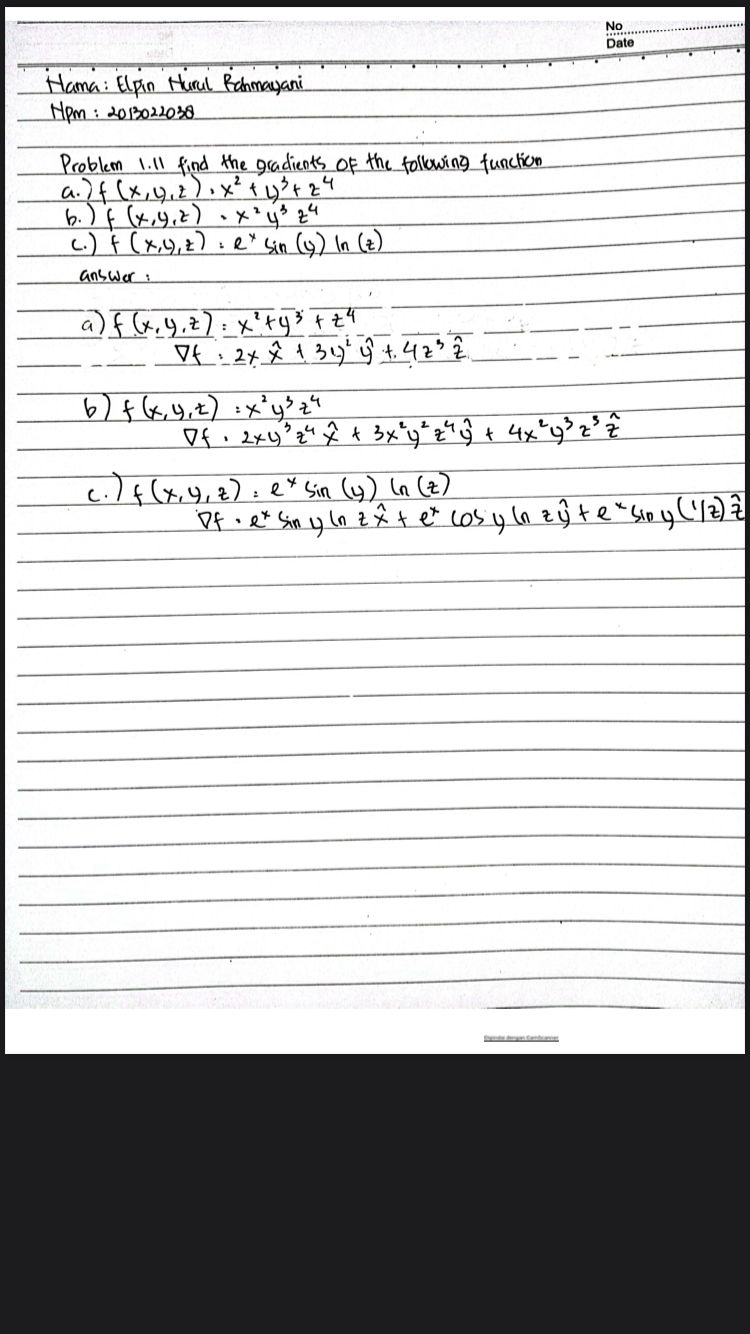 No
Date
Nama : Elpin Nurul Rahmayani
Npm : 2013022038
Problem 1.11 find the gradients of the following function
a.) f (x,y,z) = x² + y³ + z⁴
b.) f (x,y,z) = x² y³ z⁴
c.) f (x,y,z) = eˣ sin (y) ln (z)
answer :
a) f (x,y,z) = x² + y³ + z⁴
∇f = 2x x̂ + 3y² ŷ + 4z³ ẑ
b) f (x,y,z) = x² y³ z⁴
∇f = 2xy³z⁴ x̂ + 3x²y²z⁴ ŷ + 4x²y³z³ ẑ
c.) f (x,y,z) = eˣ sin (y) ln (z)
∇f = eˣ sin y ln z x̂ + eˣ cos y ln z ŷ + eˣ sin y (1/z) ẑ
Dipindai dengan CamScanner